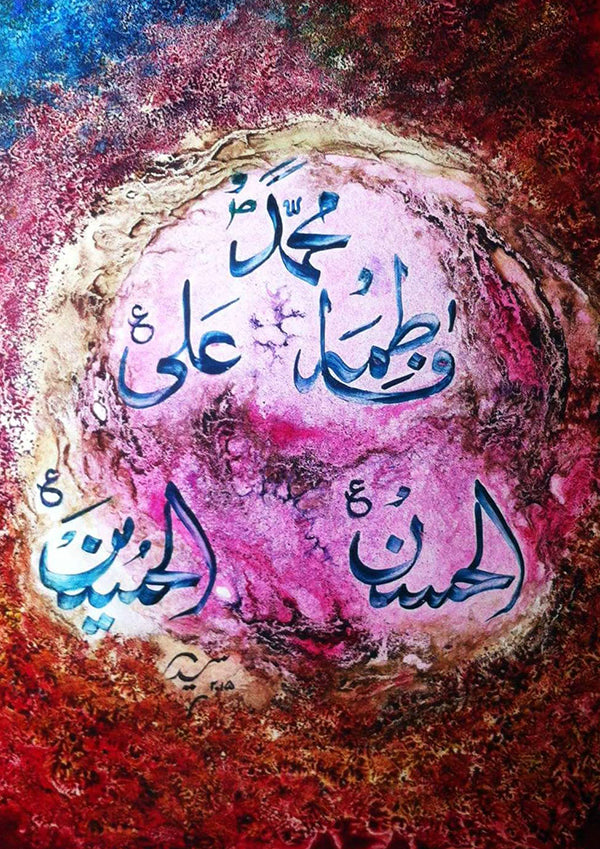 محمّد ص
فاطمة علی ع
الحسن ع الحسین ع
٢٠١٥